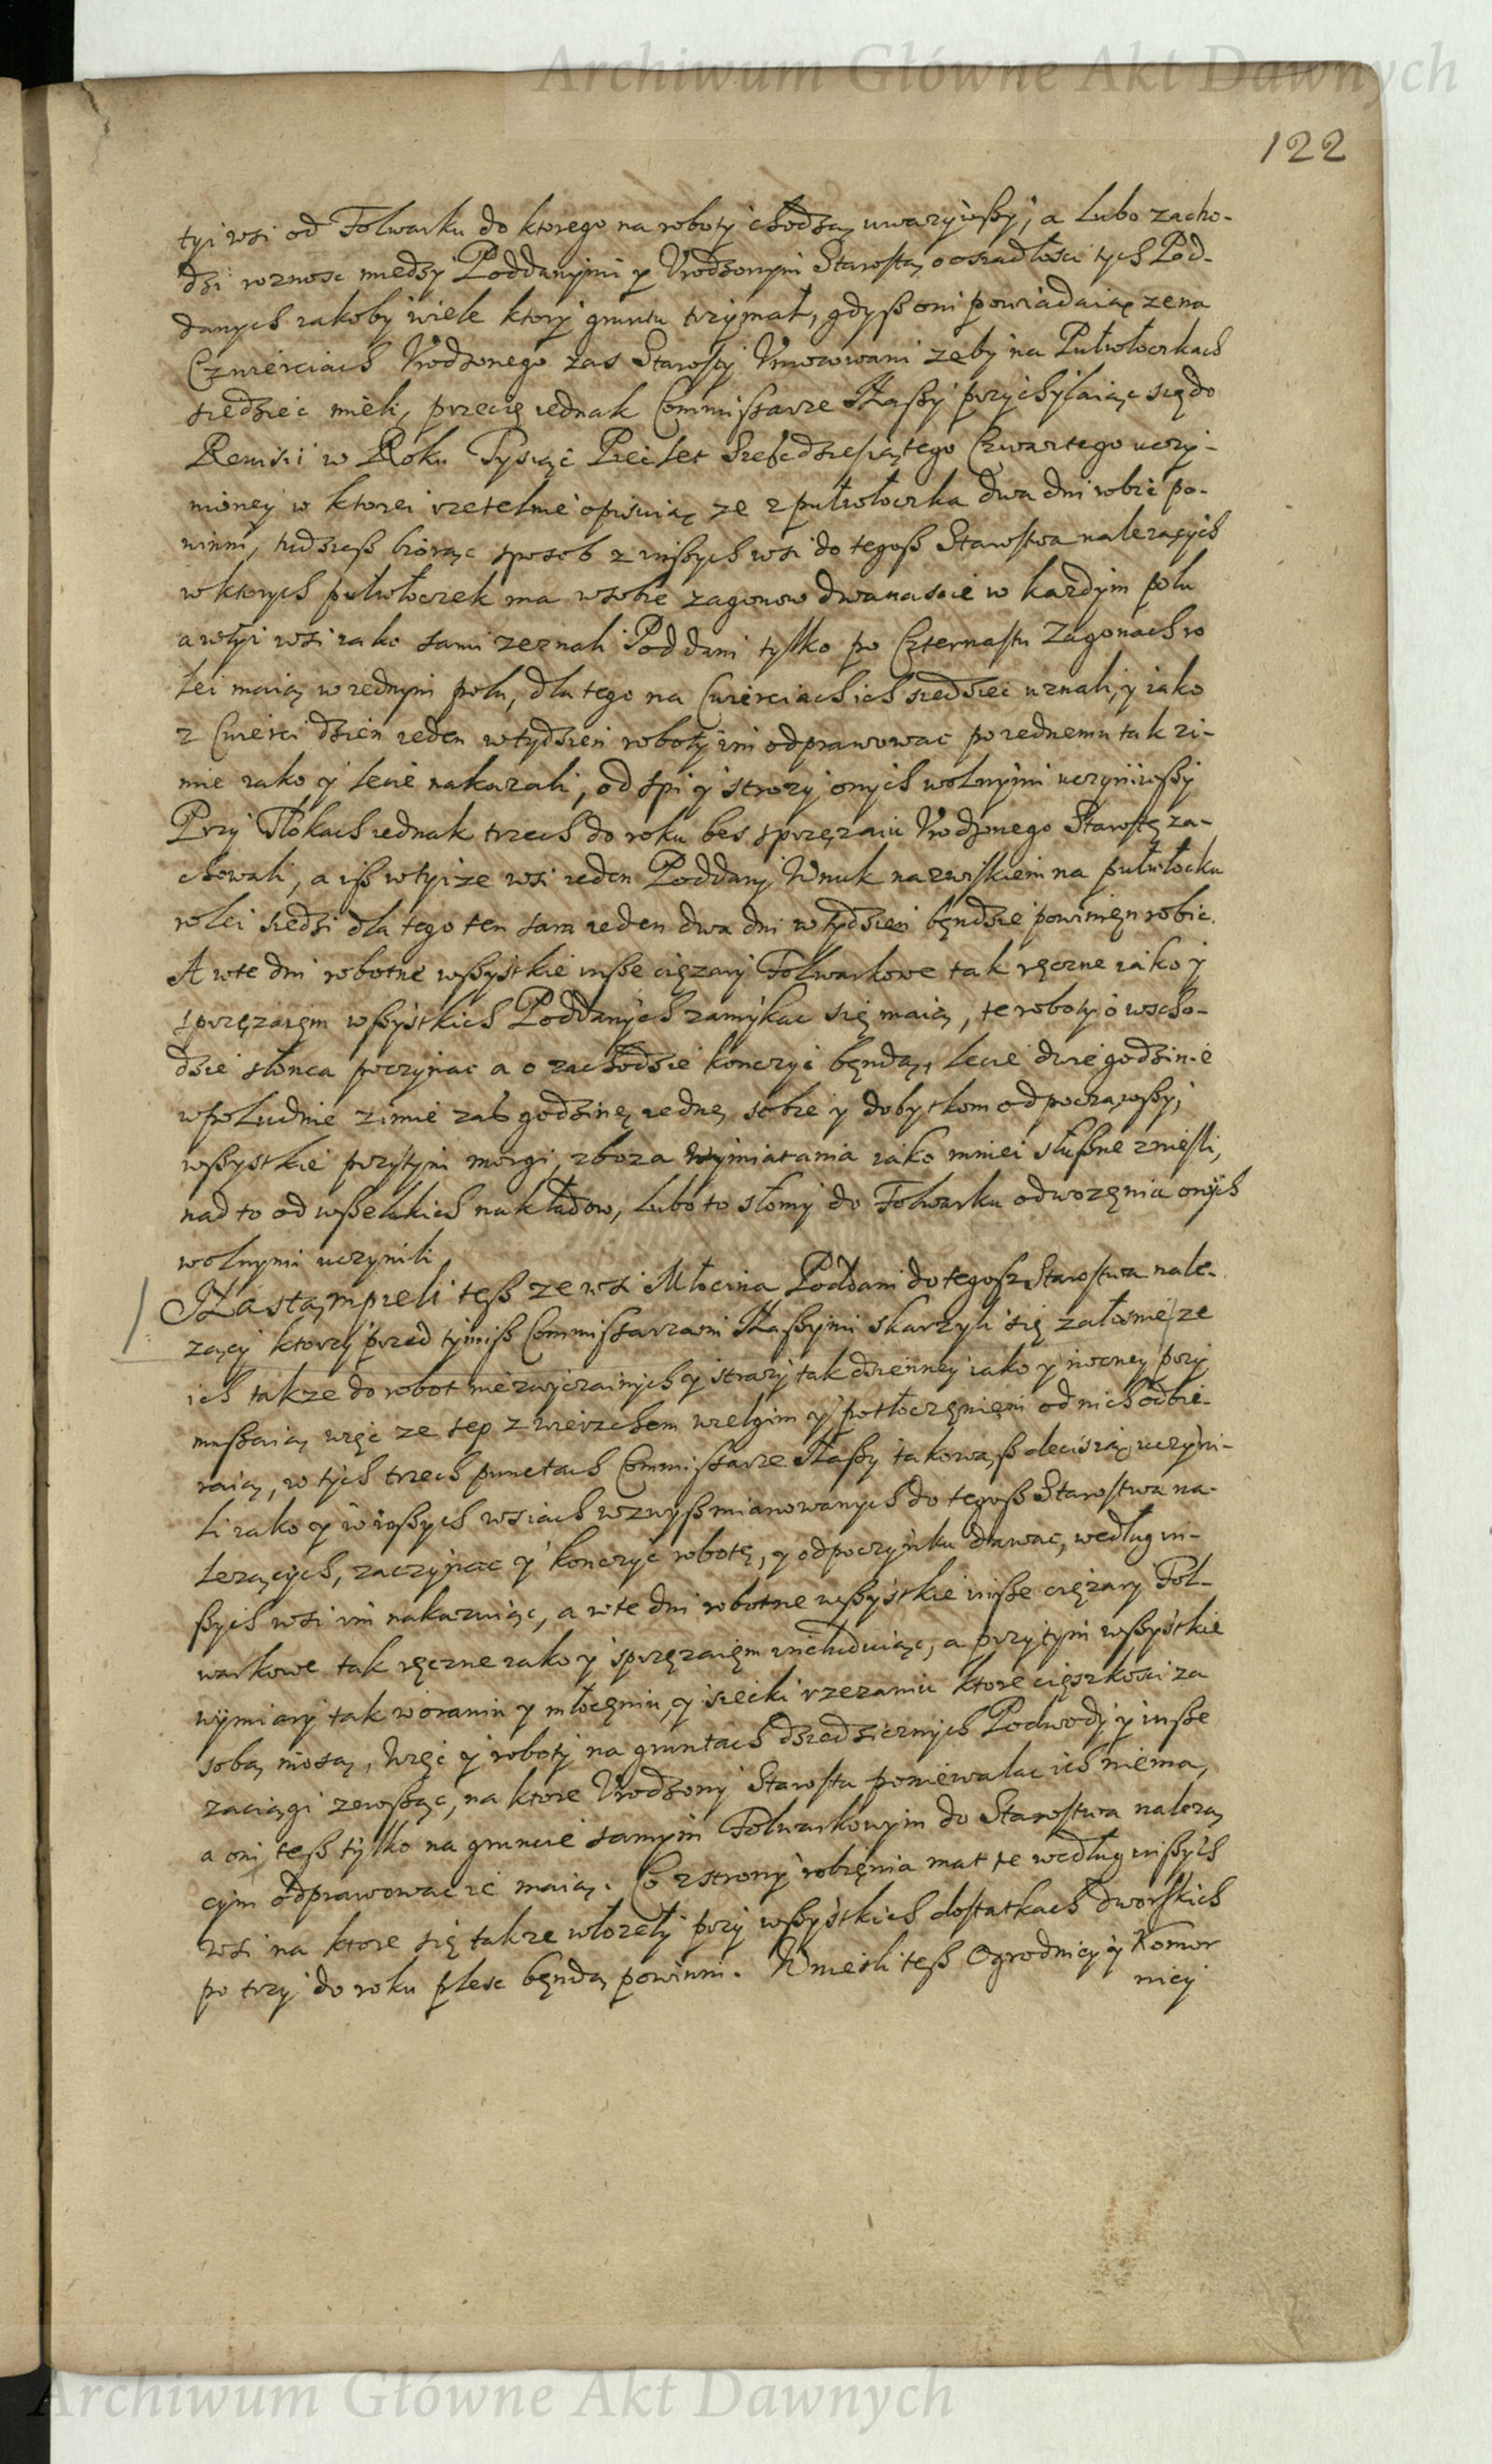 Archiwum Główne Akt Dawnych
122
tyi wsi od Folwarku do ktorego na roboty chodzą uwazywszy, a lubo zacho-
dzi roznosc miedzy Poddanymi y Urodzonym Starostą o osiadłosci tych Pod-
danych iakoby wiele ktory gruntu trzymał, gdysz oni powiadaią ze na
Czwierciach Urodzonego zas Starosty Umocowani zeby na Pułwłoczkach
siedziec mieli, przecię iednak Commissarze Naszy przychylaiąc się do
Rewisii w Roku Tysiąc Pięc Set Szescdziesiątego Czwartego uczy-
nioney w ktorei rzetelnie opisuią ze z pułwłoczka dwa dni robic po-
winni, tudziesz biorąc sposob z inszych wsi do tegosz Starostwa nalezących
w ktorych pułwłoczek ma w sobie zagonow dwanascie w kazdym polu
a w tyi wsi iako sami zeznali Poddani tylko po Czternastu Zagonach ro
lei maią w iednym polu, dla tego na Cwierciach ich siedziec uznali, y iako
z Cwierci dzien ieden w tydzien roboty im odprawowac po iednemu tak zi-
mie iako y lecie nakazali, od spi y strozy onych wolnymi uczyniwszy
Przy Tłokach iednak trzech do roku bes sprzęzaiu Urodzonego Starostę za-
chowali, a isz w tyize wsi ieden Poddany Wnuk nazwiskiem na pułwłocku
rolei siedzi dla tego ten sam ieden dwa dni w tydzien będzie powinięn robic.
A w te dni robotne wszystkie insze cięzary Folwarkowe tak ręczne iako y
sprzęzaięm wszystkich Poddanych zamykac się maią, te roboty o wscho-
dzie słonca poczynac a o zachodzie konczyc bęndą, lecie dwie godzinie
w południe zimie zas godzinę iednę sobie y dobytkom odpocząwszy,
wszystkie przytym morgi, zboza wymiatania iako mniei słuszne zniesli,
nad to od wszelakich nakładow, lubo to słomy do Folwarku odwozęnia onych
wolnymi uczynili
Nastąmpieli tesz ze wsi Młocina Poddani do tegosz Starostwa nale-
zący ktorzy przed tymisz Commissarzami Naszymi skarzyli się załosnie, ze
ich takze do robot niezwyczainych y strazy tak dzienney iako y nocney przy
muszaią więc ze sep z wierzchem wielgim y potłoczęnięm od nich odbie-
raią, w tych trzech punctach Commissarze Naszy takowąsz decisią uczyni-
li iako y w inszych wsiach wzwysz mianowanych do tegosz Starostwa na-
lezących, zaczynac y konczyc robotę, y odpoczynku dawac, według in-
szych wsi im nakazuiąc, a w te dni robotne wszystkie insze cięzary Fol-
warkowe tak ręczne iako y sprzęzaięm includuiąc, a przytym wszystkie
wymiary tak w oraniu y młocęniu, y siecki rzezaniu ktore cięszkosci za
sobą niosą, Więc y roboty na gruntach dziedzicznych Podwody y insze
zaciągi zewsząc, na ktore Urodzony Starosta poniewalac ich niema,
a oni tesz tylko na gruncie samym Folwarkowym do Starostwa nalezą
cym odprawowac ie maią. Co z strony robięnia mat te według inszych
wsi na ktore się takze włozeły przy wszystkich dostatkach dworskich
po trzy do roku plesc bęndą powinni. Wniesli tesz Ogrodnicy y Komor
nicy
Archiwum Główne Akt Dawnych